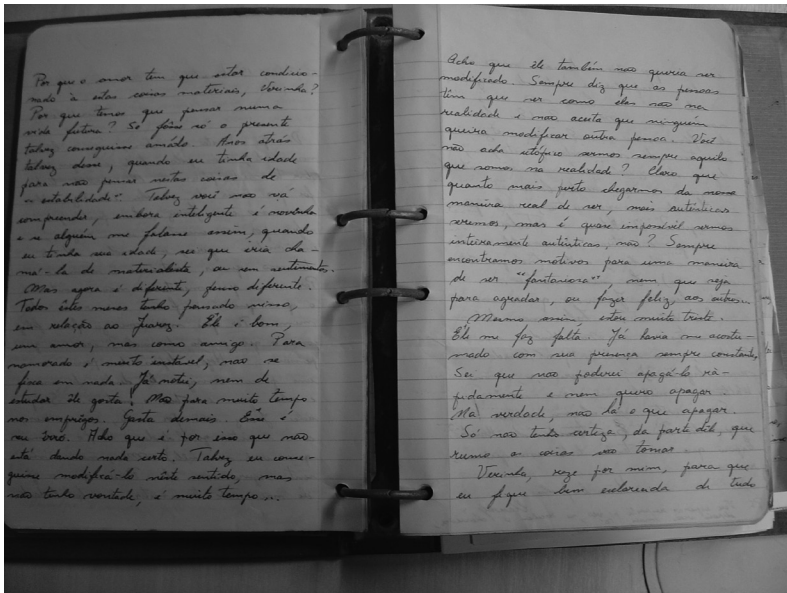 Por que o amor tem que estar condicio-
nado à estas coisas materiais, Verinha?
Por que temos que pensar numa
vida futura? Se fôsse só o presente
talvez conseguisse amá-lo. Anos atrás
talvez desse, quando eu tinha idade
para não pensar nestas coisas de
"estabilidade". Talvez você não vá
compreender, embora inteligente é novinha
e se alguém me falasse assim, quando
eu tinha sua idade, sei que iria cha-
má-la de materialista, ou sem sentimentos.
Mas agora é diferente, penso diferente.
Todos êstes meses tenho pensado nisso,
em relação ao Juarez. Êle é bom,
um amor, mas como amigo. Para
namorado, é muito instável, não se
fixa em nada. Já notei, nem de
estudar êle gosta. Não para muito tempo
nos emprêgos. Gasta demais. Êsse é
seu êrro. Acho que é por isso que não
está dando nada certo. Talvez eu conse-
guisse modificá-lo nêste sentido, mas
não tenho vontade, é muito tempo...
Acho que êle também não queria ser
modificado. Sempre diz que as pessoas
têm que ser como elas são na
realidade e não aceita que ninguém
queira modificar outra pessoa. Você
não acha utópico sermos sempre aquilo
que somos na realidade? Claro que
quanto mais perto chegarmos da nossa
maneira real de ser, mais autênticas
seremos, mas é quase impossível sermos
inteiramente autênticas, não? Sempre
encontramos motivos para uma maneira
de ser "fantasiosa", nem que seja
para agradar, ou fazer feliz, aos outros...
Mesmo assim estou muito triste.
Êle me faz falta. Já havia me acostu-
mado com sua presença sempre constante,
Sei que não poderei apagá-lo rà-
pidamente e nem quero apagar.
Na verdade, não há o que apagar.
Só não tenho certeza, da parte dêle, que
rumo as coisas vão tomar.
Verinha, reze por mim, para que
eu fique bem esclarecida de tudo